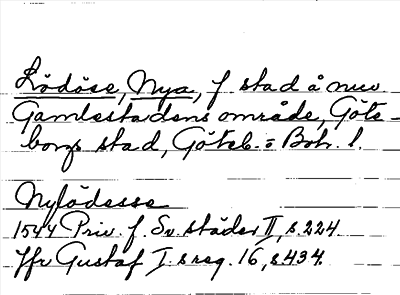 Lödöse, Nya, f stad å nuv
Gamlestadens område, Göte-
borgs stad, Göteb. o Boh. l.
Nylödesse
1544 Priv. f. Sv. städer II, s. 224.
Jfr Gustaf I:s reg. 16, s 434.